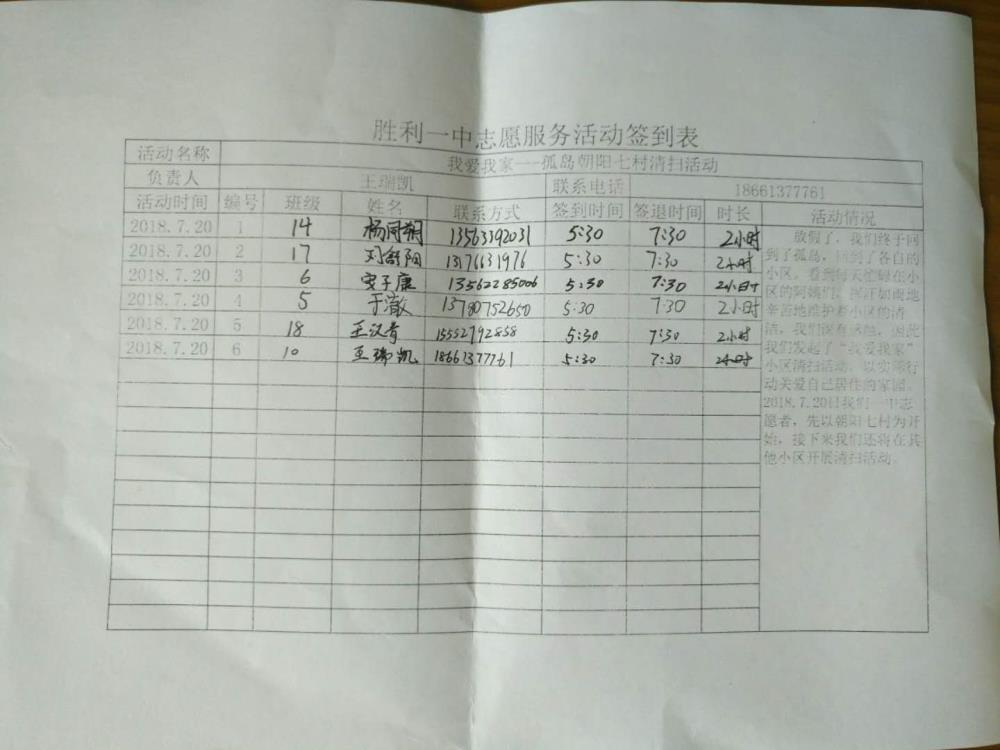 胜利一中志愿服务活动签到表
活动名称 我爱我家---孤岛朝阳七村清扫活动
负责人 王瑞凯 联系电话 18661377761
活动时间 编号 班级 姓名 联系方式 签到时间 签退时间 时长 活动情况
2018.7.20 1 14 杨同 13563192031 5:30 7:30 2小时
2018.7.20 2 17 刘舒阳 13176631976 5:30 7:30 2小时
2018.7.20 3 6 安子康 13562285006 5:30 7:30 2小时
2018.7.20 4 5 于澈 13780752650 5:30 7:30 2小时
2018.7.20 5 18 王汉青 15552792858 5:30 7:30 2小时
2018.7.20 6 10 王瑞凯 18661377761 5:30 7:30 2小时
放假了，我们终于回
到了孤岛，回到了各自的
小区。看到每天忙碌在小
区的阿姨们，挥汗如雨地
辛苦地维护着小区的清
洁，我们深有感触，因此
我们发起了“我爱我家”
小区清扫活动，以实际行
动关爱自己居住的家园。
2018.7.20日我们一中志
愿者，先以朝阳七村为开
始，接下来我们还将在其
他小区开展清扫活动。